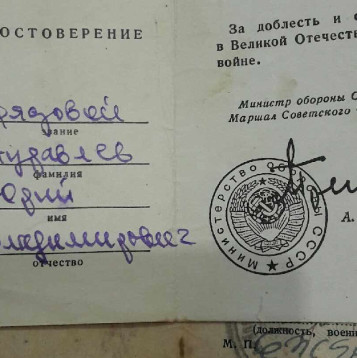 ДОСТОВЕРЕНИЕ
рядовой
звание
фамилия
Юрий
имя
ладимирович
отчество
За доблесть и о
в Великой Отечеств
войне.
Министр обороны С
Маршал Советского
А.
Министерство обороны СССР
(должность, воен
М. П.